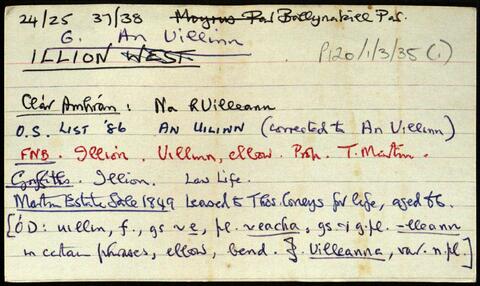 24/25 37/38 Moyrus Par Ballynakill Par.
G. An Uillinn
P120/1/3/35 (i)
ILLION WEST
Clár Amhrán : Na hUilleann
O.S. LIST '86 AN UILINN (corrected to An Uillinn)
FNB. Illion. Uillinn, elbow. Prop. T. Martin.
Griffiths. Illion. Law Life.
Martin Estate Sale 1849 leased to Thos. Coneys for life, aged 86.
[ÓD: uillin, f., gs ~e, pl. ~eacha, gs. ⁊ g.pl. -lleann
in certain phrases, elbow, bend. ⁊ Uilleanna, var. n.pl.]